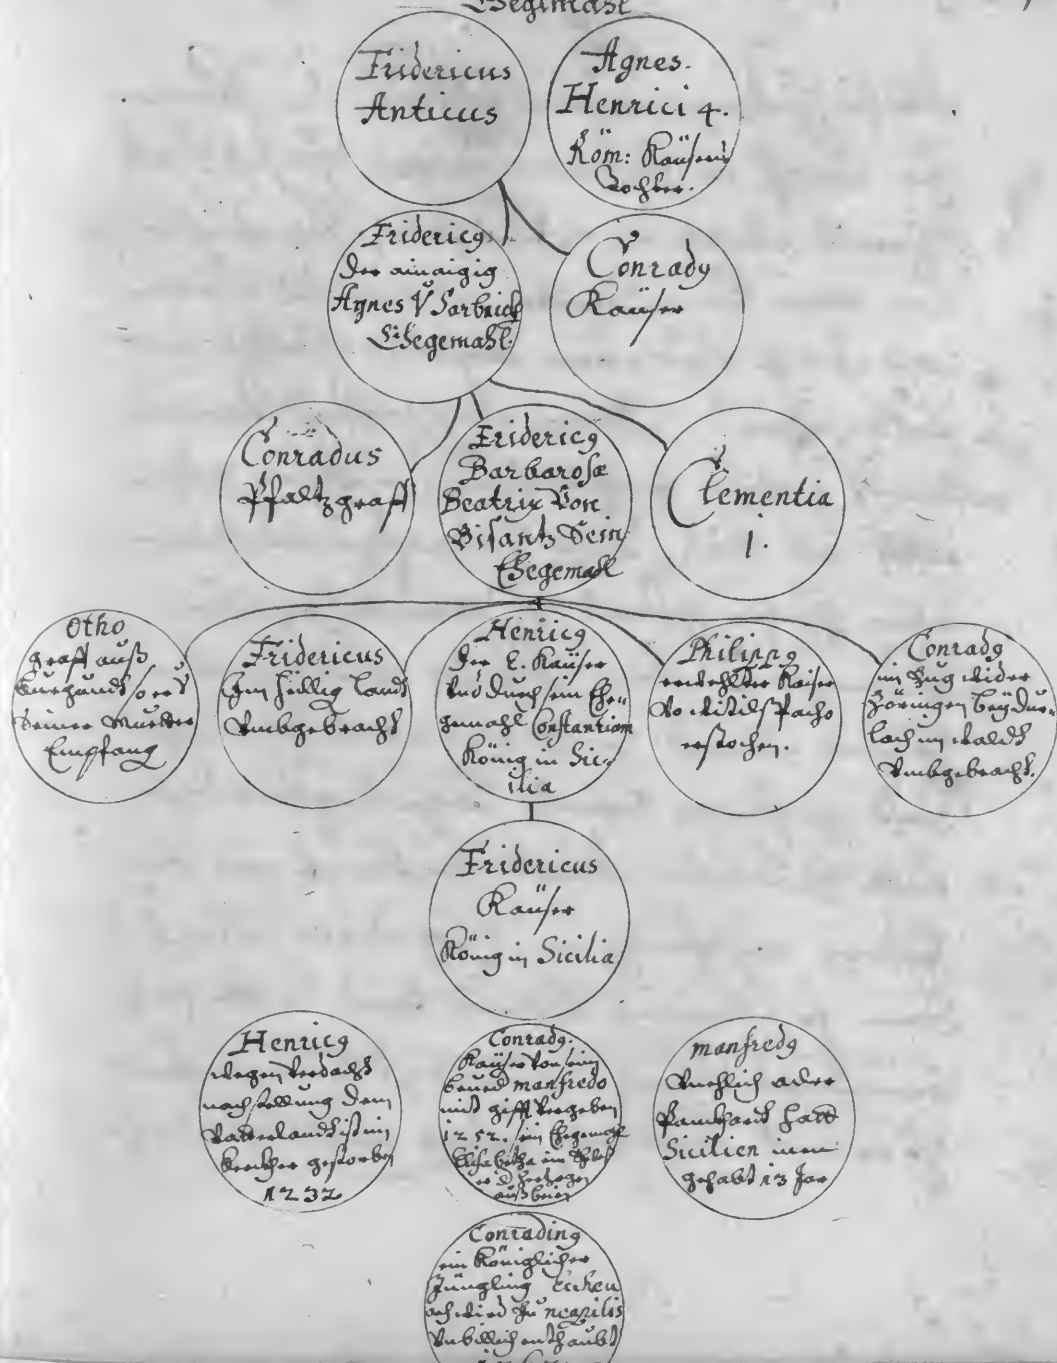 Ehegemahl
Fridericus
Anticus
Agnes.
Henrici 4.
Röm: Kaÿsers
Tochter.
Fridericꝰ
Der ainaigig
Agnes V Sarbrick
Ehegemahl.
Conradꝰ
Kaÿser
Conradus
Pfaltzgraff
Fridericꝰ
Barbarosæ
Beatrix Von
Bisantz Sein
Ehegemahl
Clementia
1.
Otho
graff auß
Burgundt
Seiner Mutter
Empfang
Fridericus
Im
Vmbgebracht
Henricꝰ
Der Kaÿser
Vnd durch sein Ehe-
gemahl Constantiam
König in Sici-
ilia
Philippꝰ
erwehlter Kaiser
erstochen.
Conradꝰ
im Zug wider
Zäringen beÿ Dur-
lach im waldt
Vmbgebracht.
Fridericus
Kaÿser
König in Sicilia
Henricꝰ
wegen Verdacht
nachstellung dem
Vatterlandt ist im
kercker gestorben
1232
Conradꝰ.
Kaÿser Von seim
brued manfredo
mit gifft Vergeben
1252. sein Ehegemahl
Elisabetha ein
auß beiern
manfredꝰ
Vnehlich oder
Panckhart hatt
Sicilien innen
gehabt 13 Jar
Conradinꝰ
ein Königlicher
Jüngling
wird zu neapilis
Vnbillich enthaubt